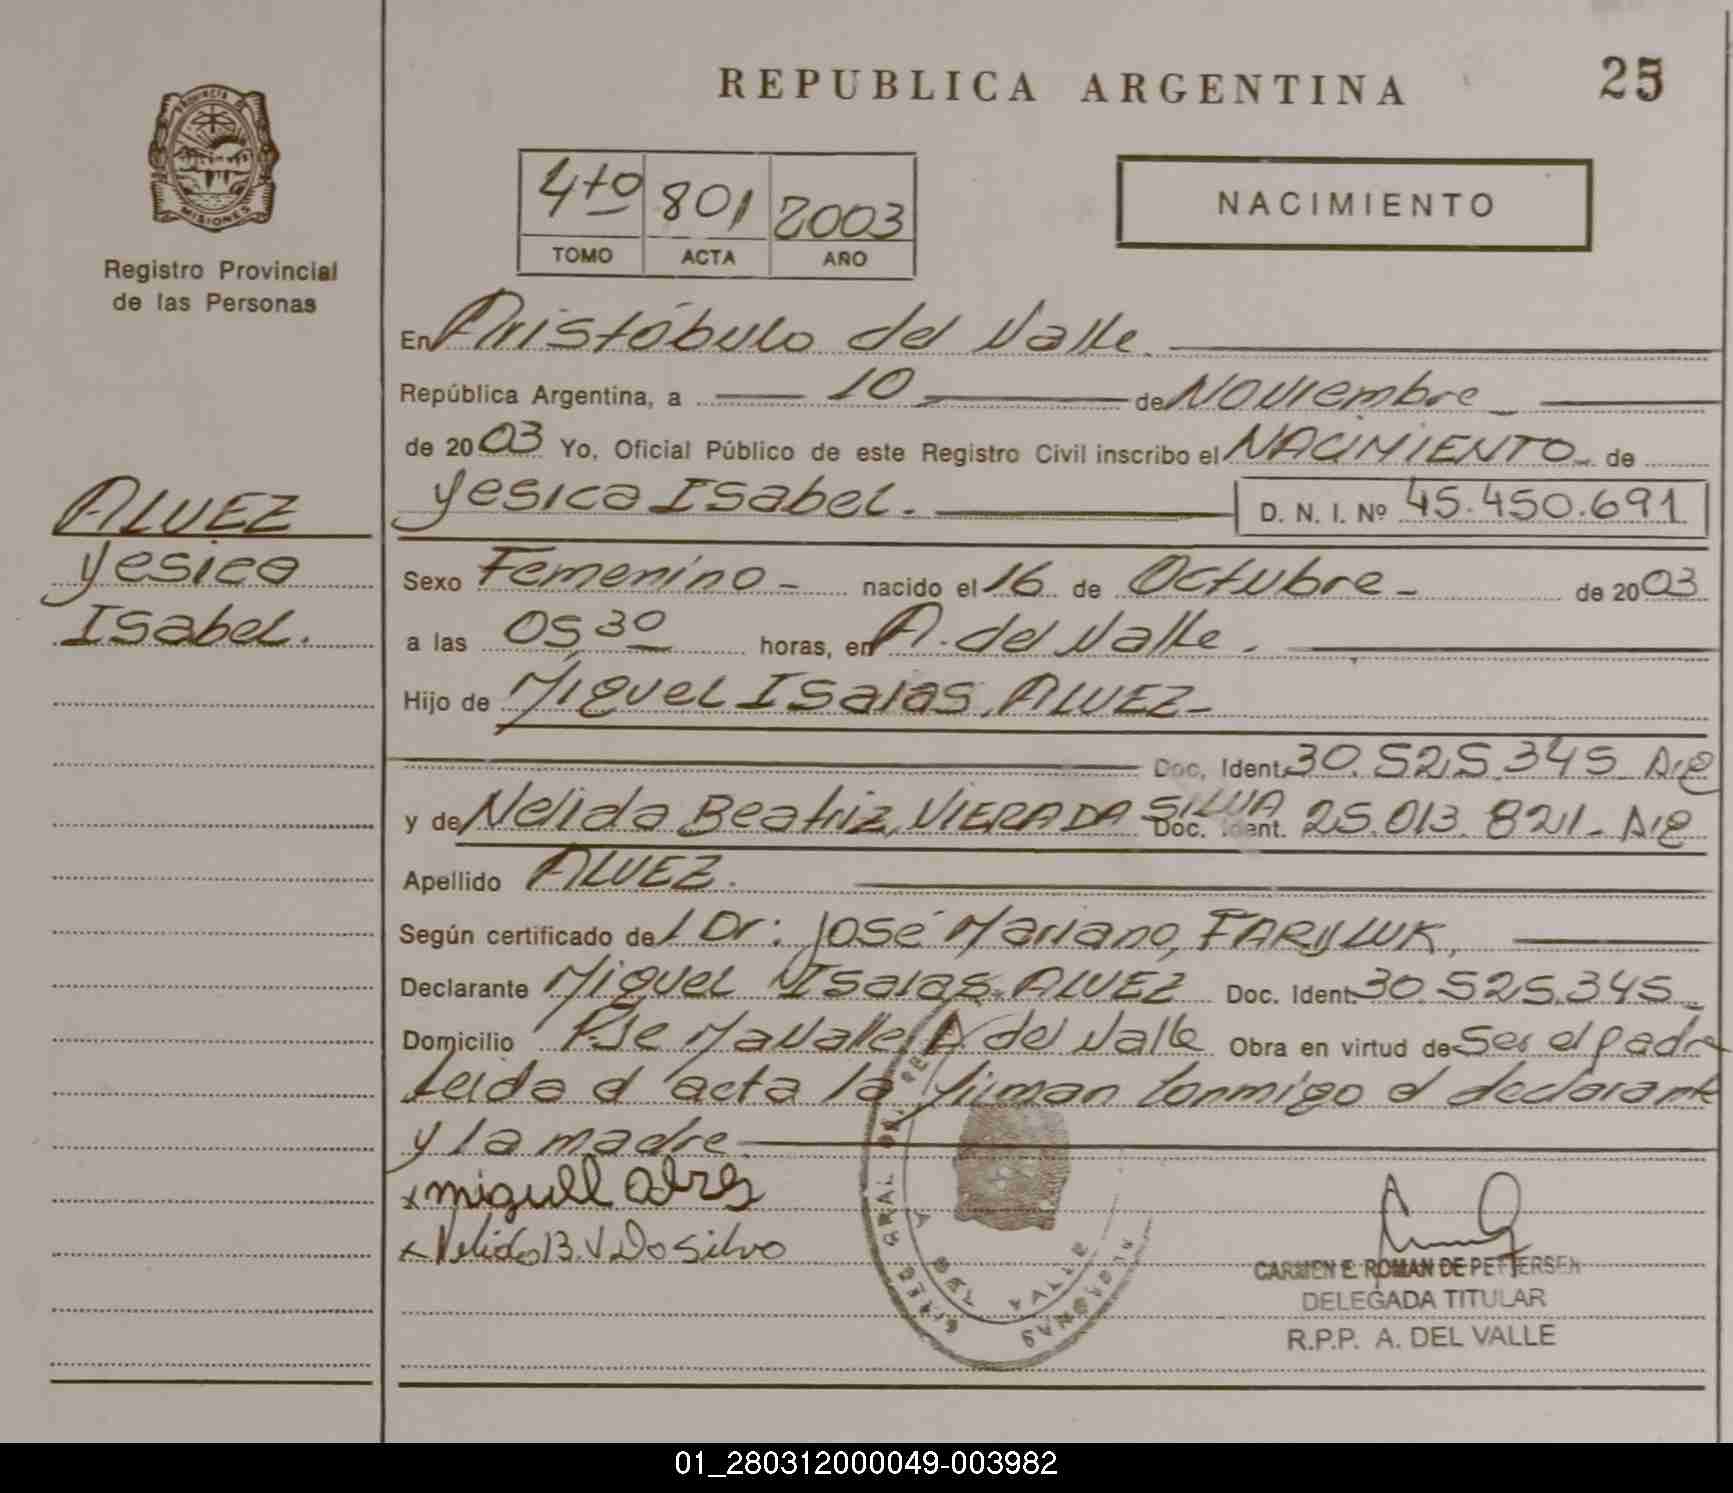 REPUBLICA ARGENTINA
25
PROVINCIA DE
MISIONES
Registro Provincial
de las Personas
4to 801 2003
TOMO ACTA AÑO
NACIMIENTO
En Aristóbulo del Valle.
República Argentina, a 10 de Noviembre
de 2003 Yo, Oficial Público de este Registro Civil inscribo el NACIMIENTO de
Yesica Isabel. D. N. I. Nº 45.450.691
ALVEZ
Yesica
Isabel.
Sexo Femenino - nacido el 16 de Octubre - de 2003
a las 05,30 horas, en A. del Valle.
Hijo de Miguel Isaias, ALVEZ-
Doc. Ident. 30.525.345
y de Nelida Beatriz, VIERA DA SILVA Doc. Ident. 25.013.821-
Apellido ALVEZ.
Según certificado del Dr: José Mariano, FARYLUK,
Declarante Miguel Isaias ALVEZ Doc. Ident. 30.525.345-
Domicilio A. del Valle Obra en virtud de Ser el padre
Leida el acta la firman conmigo el declarante
y la madre.
x miguell
x Nelida B. V. Da Silva
A. DEL VALLE
CARMEN E. ROMAN DE PETTERSEN
DELEGADA TITULAR
R.P.P. A. DEL VALLE
01_280312000049-003982